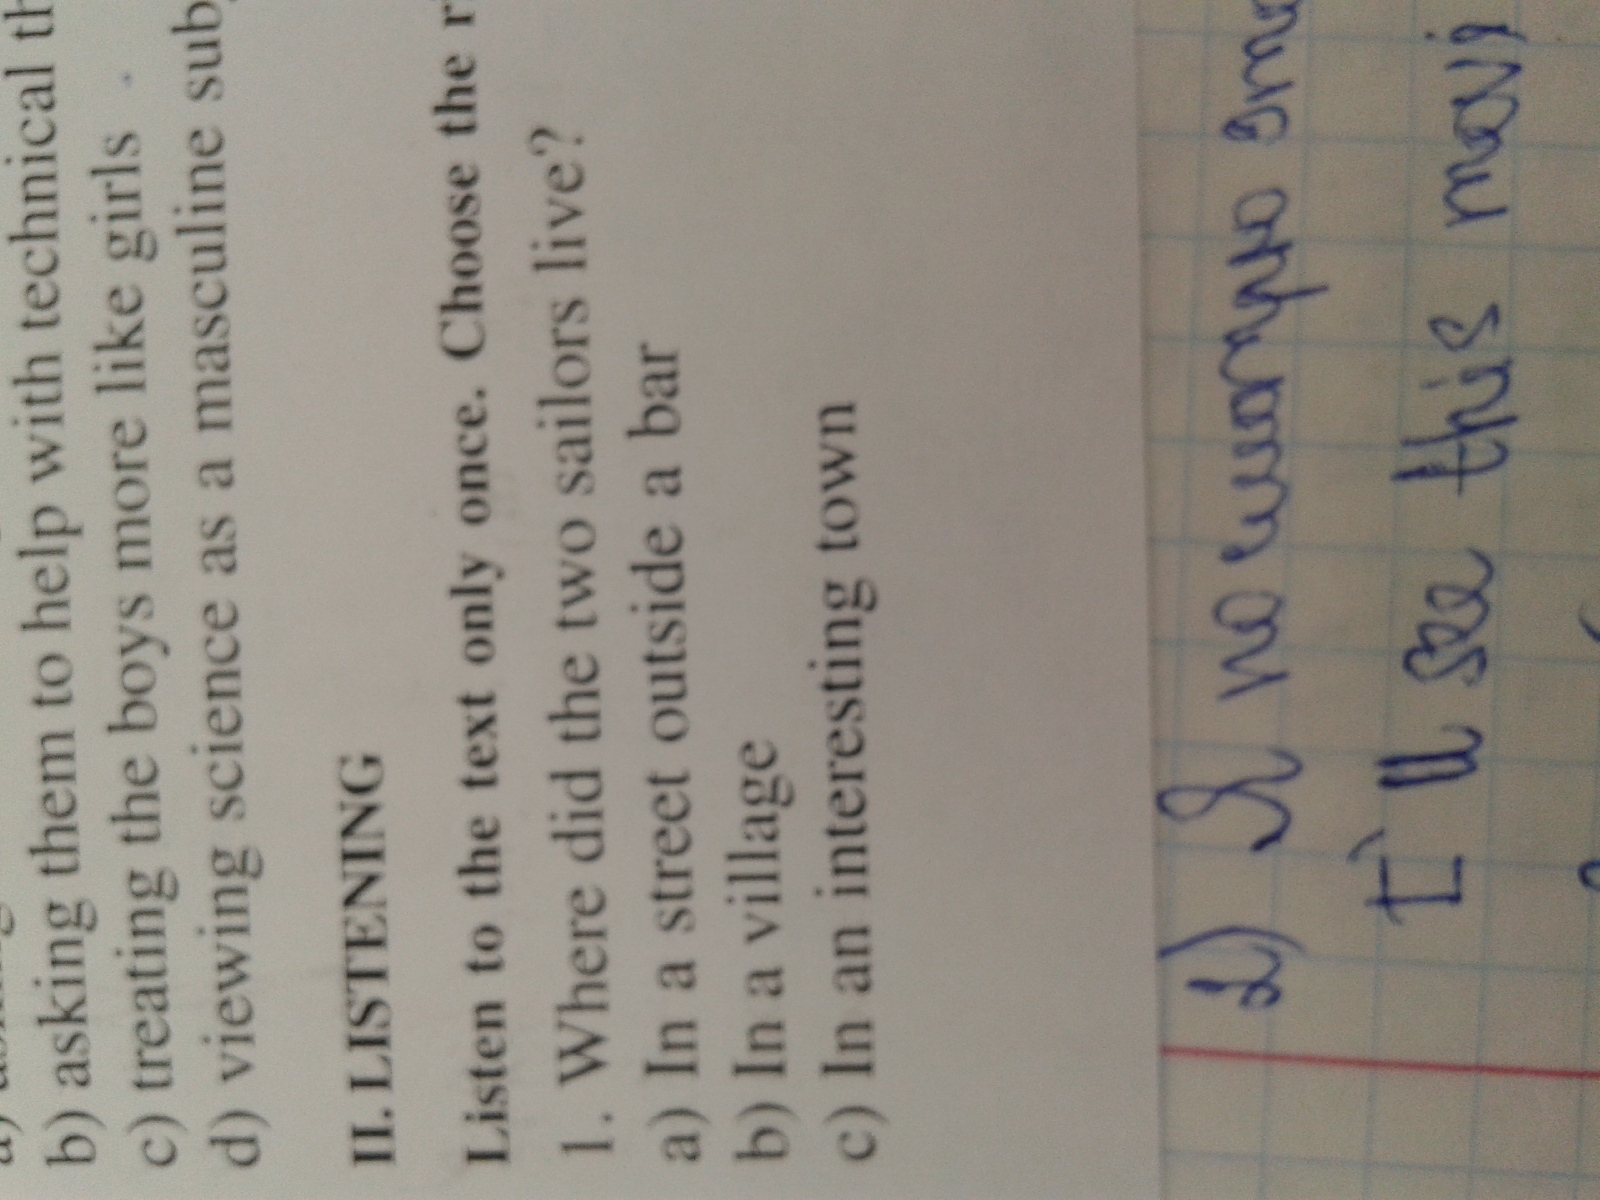 b) asking them to help with technical
c) treating the boys more like girls
d) viewing science as a masculine
II. LISTENING
Listen to the text only once. Choose the
1. Where did the two sailors live?
a) In a street outside a bar
b) In a village
c) In an interesting town
2) Я
I'll see this